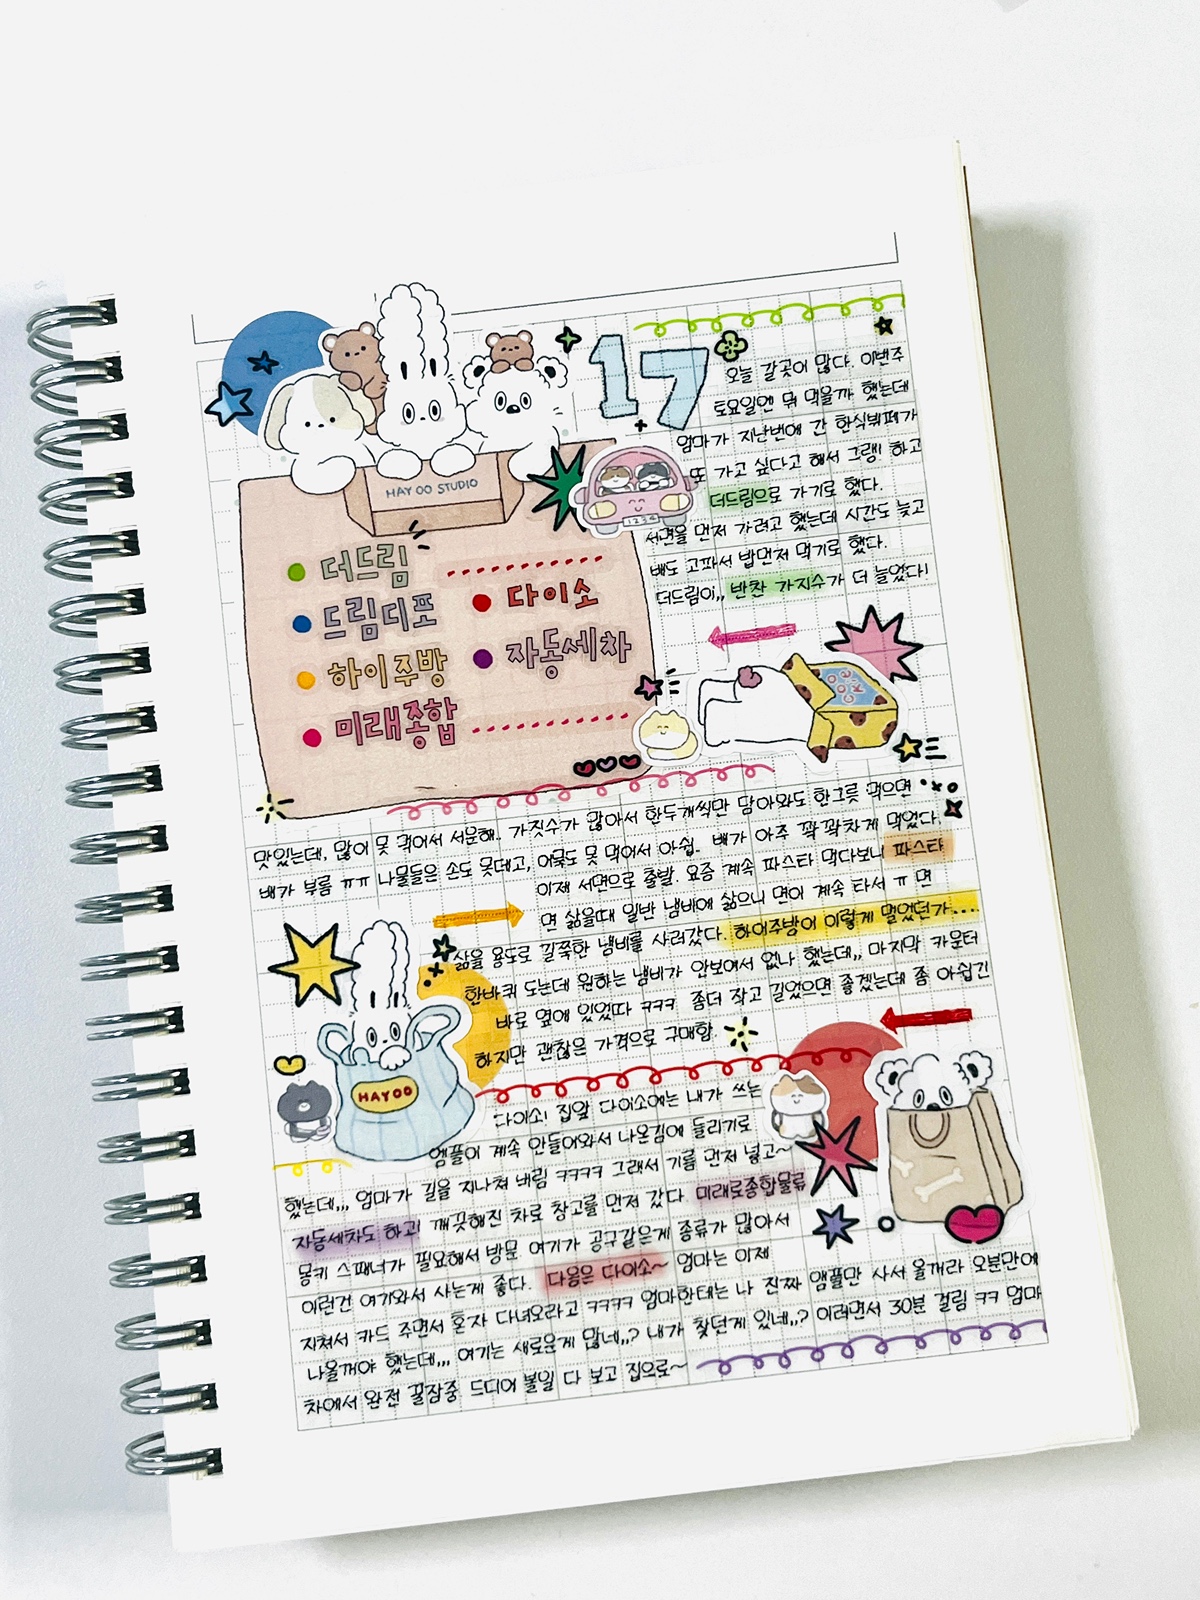 17
HAY OO STUDIO
더드림
드림디포
하이주방
미래종합
다이소
자동세차
오늘 갈곳이 많다. 이번주
토요일엔 뭐 먹을까 했는데
엄마가 지난번에 간 한식뷔페가
또 가고 싶다고 해서 그랭! 하고
더드림으로 가기로 했다.
서면을 먼저 가려고 했는데 시간도 늦고
배도 고파서 밥먼저 먹기로 했다.
더드림이,, 반찬 가지수가 더 늘었다!
1234
COOKIE
맛있는데, 많이 못 먹어서 서운해. 가짓수가 많아서 한두개씩만 담아와도 한그릇 먹으면
배가 부름 ㅠㅠ 나물들은 손도 못대고, 어묵도 못 먹어서 아쉽. 배가 아주 꽉꽉차게 먹었다.
이제 서면으로 출발. 요즘 계속 파스타 먹다보니 파스타
면 삶을때 일반 냄비에 삶으니 면이 계속 타서 ㅠ 면
삶을 용도로 길쭉한 냄비를 사러갔다. 하이주방이 이렇게 멀었던가....
한바퀴 도는데 원하는 냄비가 안보여서 없나 했는데,, 마지막 카운터
바로 옆에 있었따 ㅋㅋㅋ 좀더 작고 길었으면 좋겠는데 좀 아쉽긴
하지만 괜찮은 가격으로 구매함.
HAYOO
다이소! 집앞 다이소에는 내가 쓰는
앰플이 계속 안들어와서 나온김에 들리기로
했는데,,, 엄마가 길을 지나쳐 버림 ㅋㅋㅋㅋ 그래서 기름 먼저 넣고~
자동세차도 하고! 깨끗해진 차로 창고를 먼저 갔다 미래로종합물류
몽키 스패너가 필요해서 방문 여기가 공구같은게 종류가 많아서
이런건 여기와서 사는게 좋다. 다음은 다이소~ 엄마는 이제
지쳐서 카드 주면서 혼자 다녀오라고 ㅋㅋㅋㅋ 엄마한테는 나 진짜 앰플만 사서 올께라 오분만에
나올꺼야 했는데,,, 여기는 새로운게 많네,,? 내가 찾던게 있네,,? 이러면서 30분 걸림 ㅋㅋ 엄마
차에서 완전 꿀잠중 드디어 볼일 다 보고 집으로~